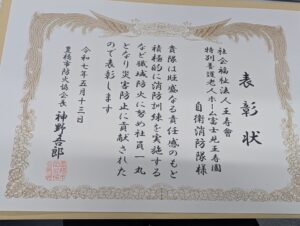 表彰状
社会福祉法人王寿會
特別養護老人ホーム富士見王寿園
自衛消防隊様
貴隊は旺盛なる責任感のもと
積極的に消防訓練を実施する
など職域防火に努め社員一丸
となり災害防止に貢献された
ので表彰します
令和七年五月十三日
豊橋市防火協会長 神野吾郎